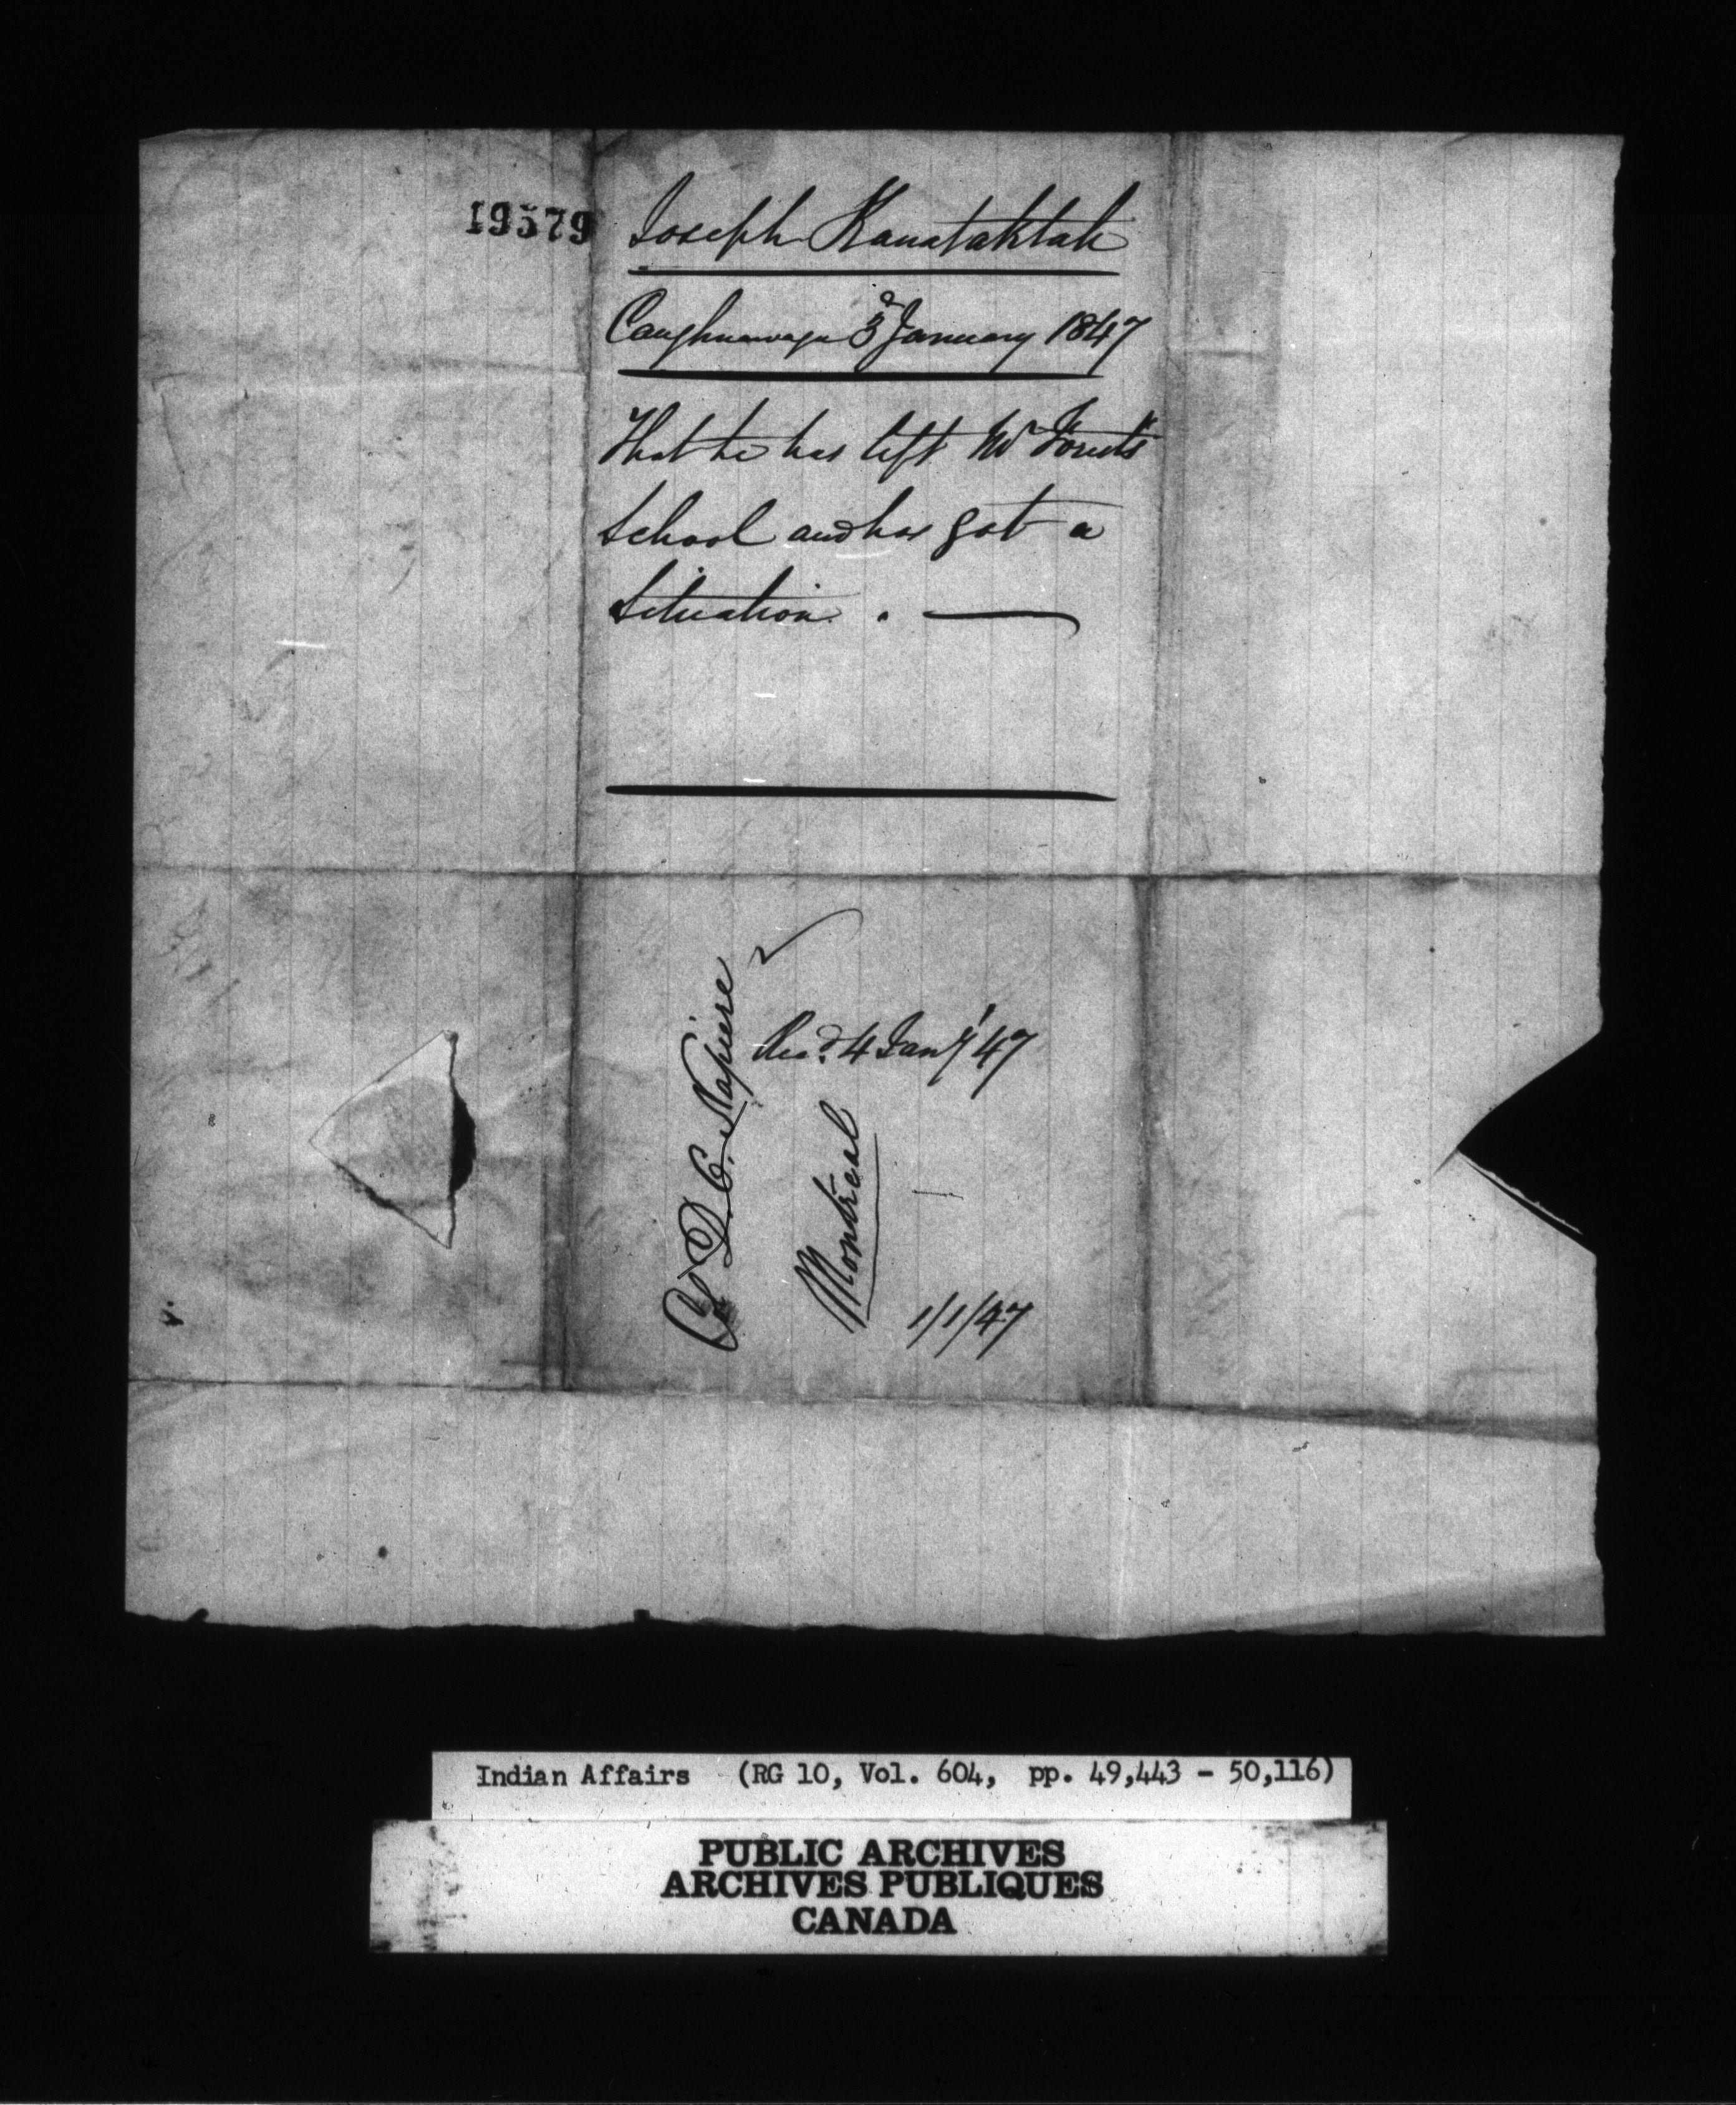 19579
Joseph Kanataktak
Caughnawaga 3d January 1847
That he has left Mr Forest's
School and has got a
Situation. —
Col D. C. Napiere
Recd. 4 Jany '47
Montreal
1/1/47
Indian Affairs (RG 10, Vol. 604, pp. 49,443 - 50,116)
PUBLIC ARCHIVES
ARCHIVES PUBLIQUES
CANADA